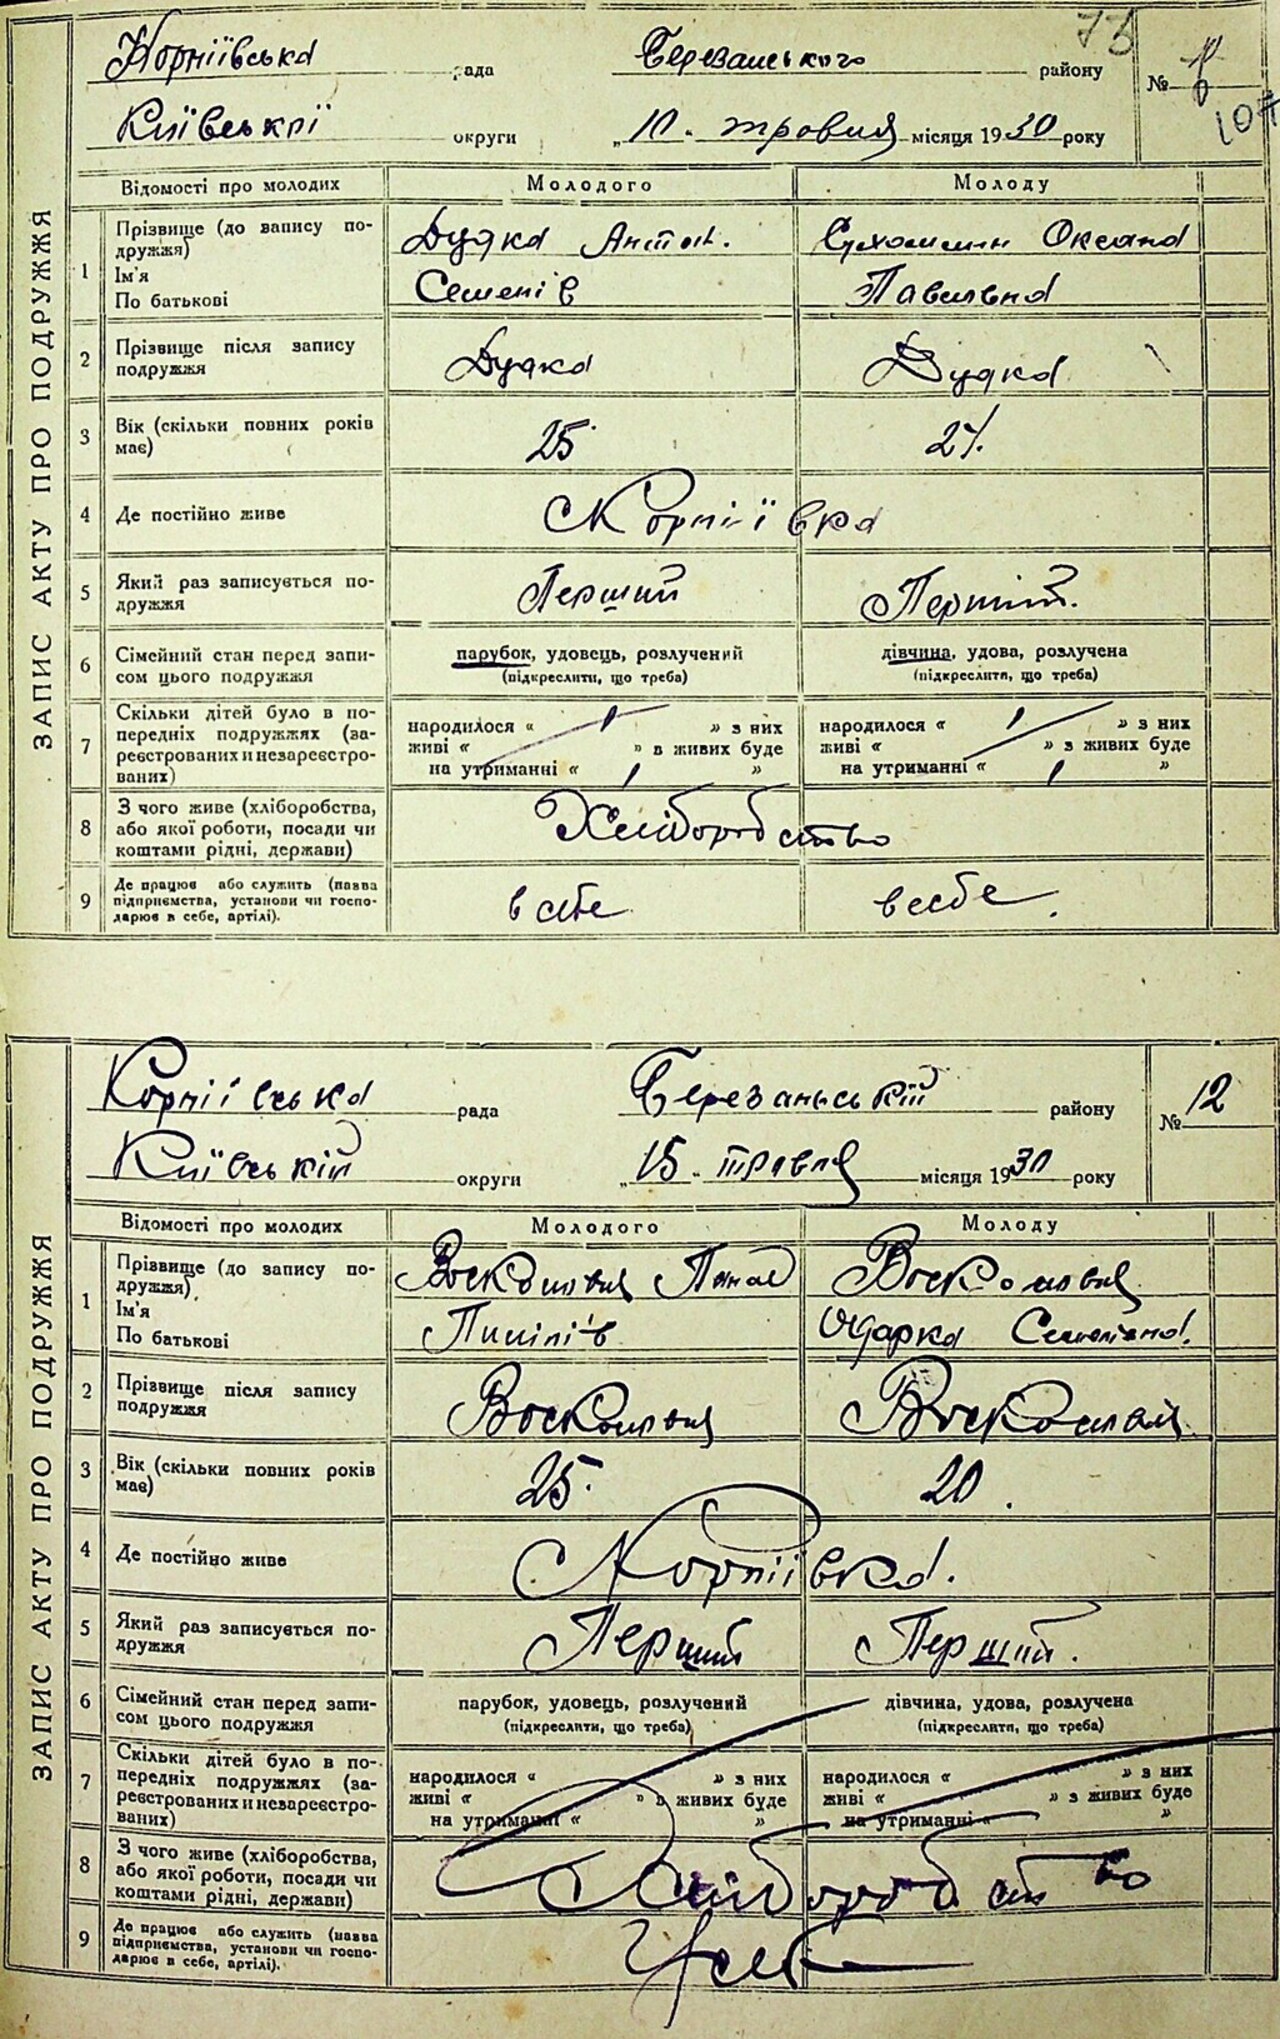 73
Корніївська рада Березанського району №
107
Київської округи „10" травня місяця 1930 року
ЗАПИС АКТУ ПРО ПОДРУЖЖЯ
Відомості про молодих Молодого Молоду
1 Прізвище (до запису подружжя) Дудка Антон. Сухомлин Оксана
Ім'я
По батькові Семенів Павлівна
2 Прізвище після запису подружжя Дудка Дудка
3 Вік (скільки повних років має) 25 21.
4 Де постійно живе С Корніївка
5 Який раз записується подружжя Перший Перший.
6 Сімейний стан перед записом цього подружжя парубок, удовець, розлучений дівчина, удова, розлучена
(підкреслити, що треба) (підкреслити, що треба)
7 Скільки дітей було в попередніх подружжях (зареєстрованих и незареєстрованих)
народилося « » з них народилося « » з них
живі « » в живих буде живі « » з живих буде
на утриманні « » на утриманні « »
8 З чого живе (хліборобства, або якої роботи, посади чи коштами рідні, держави) Хліборобство
9 Де працює або служить (назва підприємства, установи чи господарює в себе, артілі). в себе в себе.
Корніївська рада Березанський району № 12
Київській округи „15" травня місяця 1930 року
ЗАПИС АКТУ ПРО ПОДРУЖЖЯ
Відомості про молодих Молодого Молоду
1 Прізвище (до запису подружжя) Панас
Ім'я
По батькові Пилипів Одарка Семенівна.
2 Прізвище після запису подружжя
3 Вік (скільки повних років має) 25. 20.
4 Де постійно живе С Корніївка.
5 Який раз записується подружжя Перший Перший.
6 Сімейний стан перед записом цього подружжя парубок, удовець, розлучений дівчина, удова, розлучена
(підкреслити, що треба) (підкреслити, що треба)
7 Скільки дітей було в попередніх подружжях (зареєстрованих и незареєстрованих)
народилося « » з них народилося « » з них
живі « » в живих буде живі « » з живих буде
на утриманні « » на утриманні « »
8 З чого живе (хліборобства, або якої роботи, посади чи коштами рідні, держави) Хліборобство
9 Де працює або служить (назва підприємства, установи чи господарює в себе, артілі). У себе